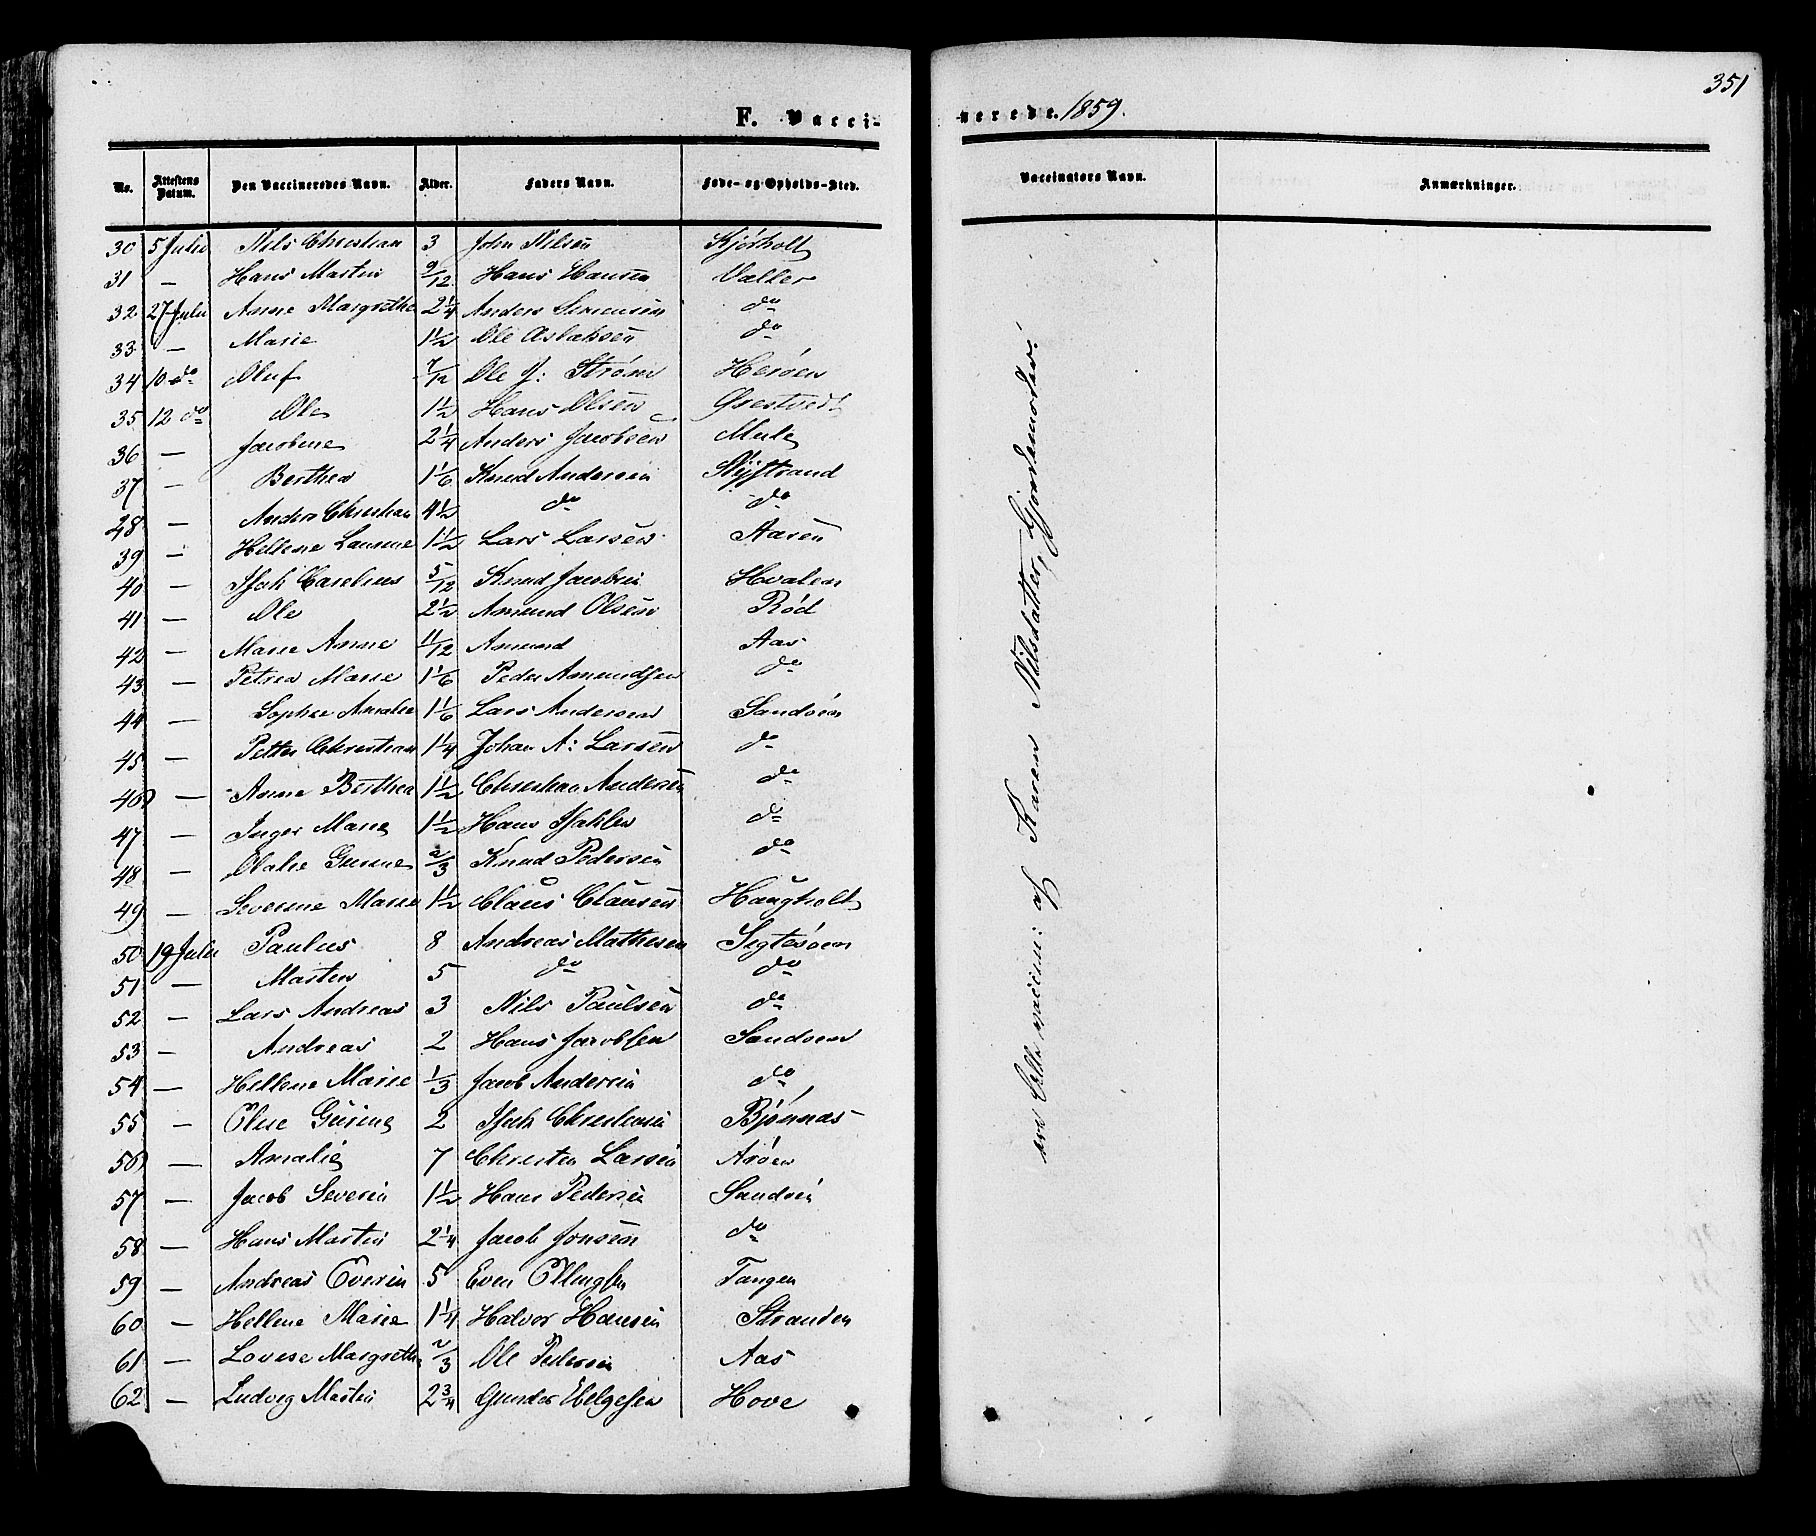 351
F. Vacci-
nerede. 1859.
No. Attestens Datum. Den Vaccineredes Navn. Alder. Faders Navn. Føde- og Opholds-Sted. Vaccinators Navn. Anmærkninger.
30 5 Julii Nils Christian 3 John Nilsen Kjørholt
31 — Hans Martin 9/12 Hans Hansen Valler
32 27 Julii Anne Margrethe 2 1/4 Anders Simensen do
33 — Marie 1 1/2 Ole Aslaksen do
34 10 do Oluf 7/12 Ole J: Strøm Herøen
35 12 do Ole 1 1/2 Hans Olsen Grestvedt
36 — Jacobine 2 1/4 Anders Jacobsen Mule
37 — Berthea 1 1/6 Knud Andersen
28 — Anders Christian 4 1/2 do do
39 — Hellene Laurine 1 1/2 Lars Larsen Aarøen
40 — Isak Carelius 5/12 Knud Jacobsen Hvalen
41 — Ole 2 1/2 Amund Olsen Rød
42 — Marie Anne 11/12 Amund Aas
43 — Petrea Marie 1 1/6 Peder Amundsen do
44 — Sophie Amalie 1 1/6 Lars Andersen Sandøen
45 — Petter Christian 1 1/4 Johan A: Larsen do
46 — Anne Berthea 1 1/2 Christian Andersen do
47 — Inger Marie 1 1/2 Hans do
48 — Olalie Gurine 2/3 Knud Pedersen do
49 — Severine Marie 1 1/2 Claus Clausen Haugholt
50 19 Julii Paulus 8 Andreas Mathisen Sigtesøen
51 — Marten 5 do do
52 — Lars Andreas 3 Nils Paulsen do
53 — Andreas 2 Hans Jacobsen Sandøen
54 — Hellene Marie 1/3 Jacob Andersen do
55 — Elise Gurine 2 Isak Christensen Bjønnæs
56 — Amalie 7 Christen Larsen Arøen
57 — Jacob Severin 1 1/2 Hans Pedersen Sandøen
58 — Hans Martin 2 1/4 Jacob Jonsen do
59 — Andreas Everin 5 Even Ellingsen Tangen
60 — Hellene Marie 1 1/4 Halvor Hansen Stranden
61 — Lovise Margrethe 2/3 Ole Pedersen Aas
62 — Ludvig Martin 2 3/4 Gunder Helgesen Hove
ere alle vaccin: af Karen Nilsdatter, Gjordemoder.